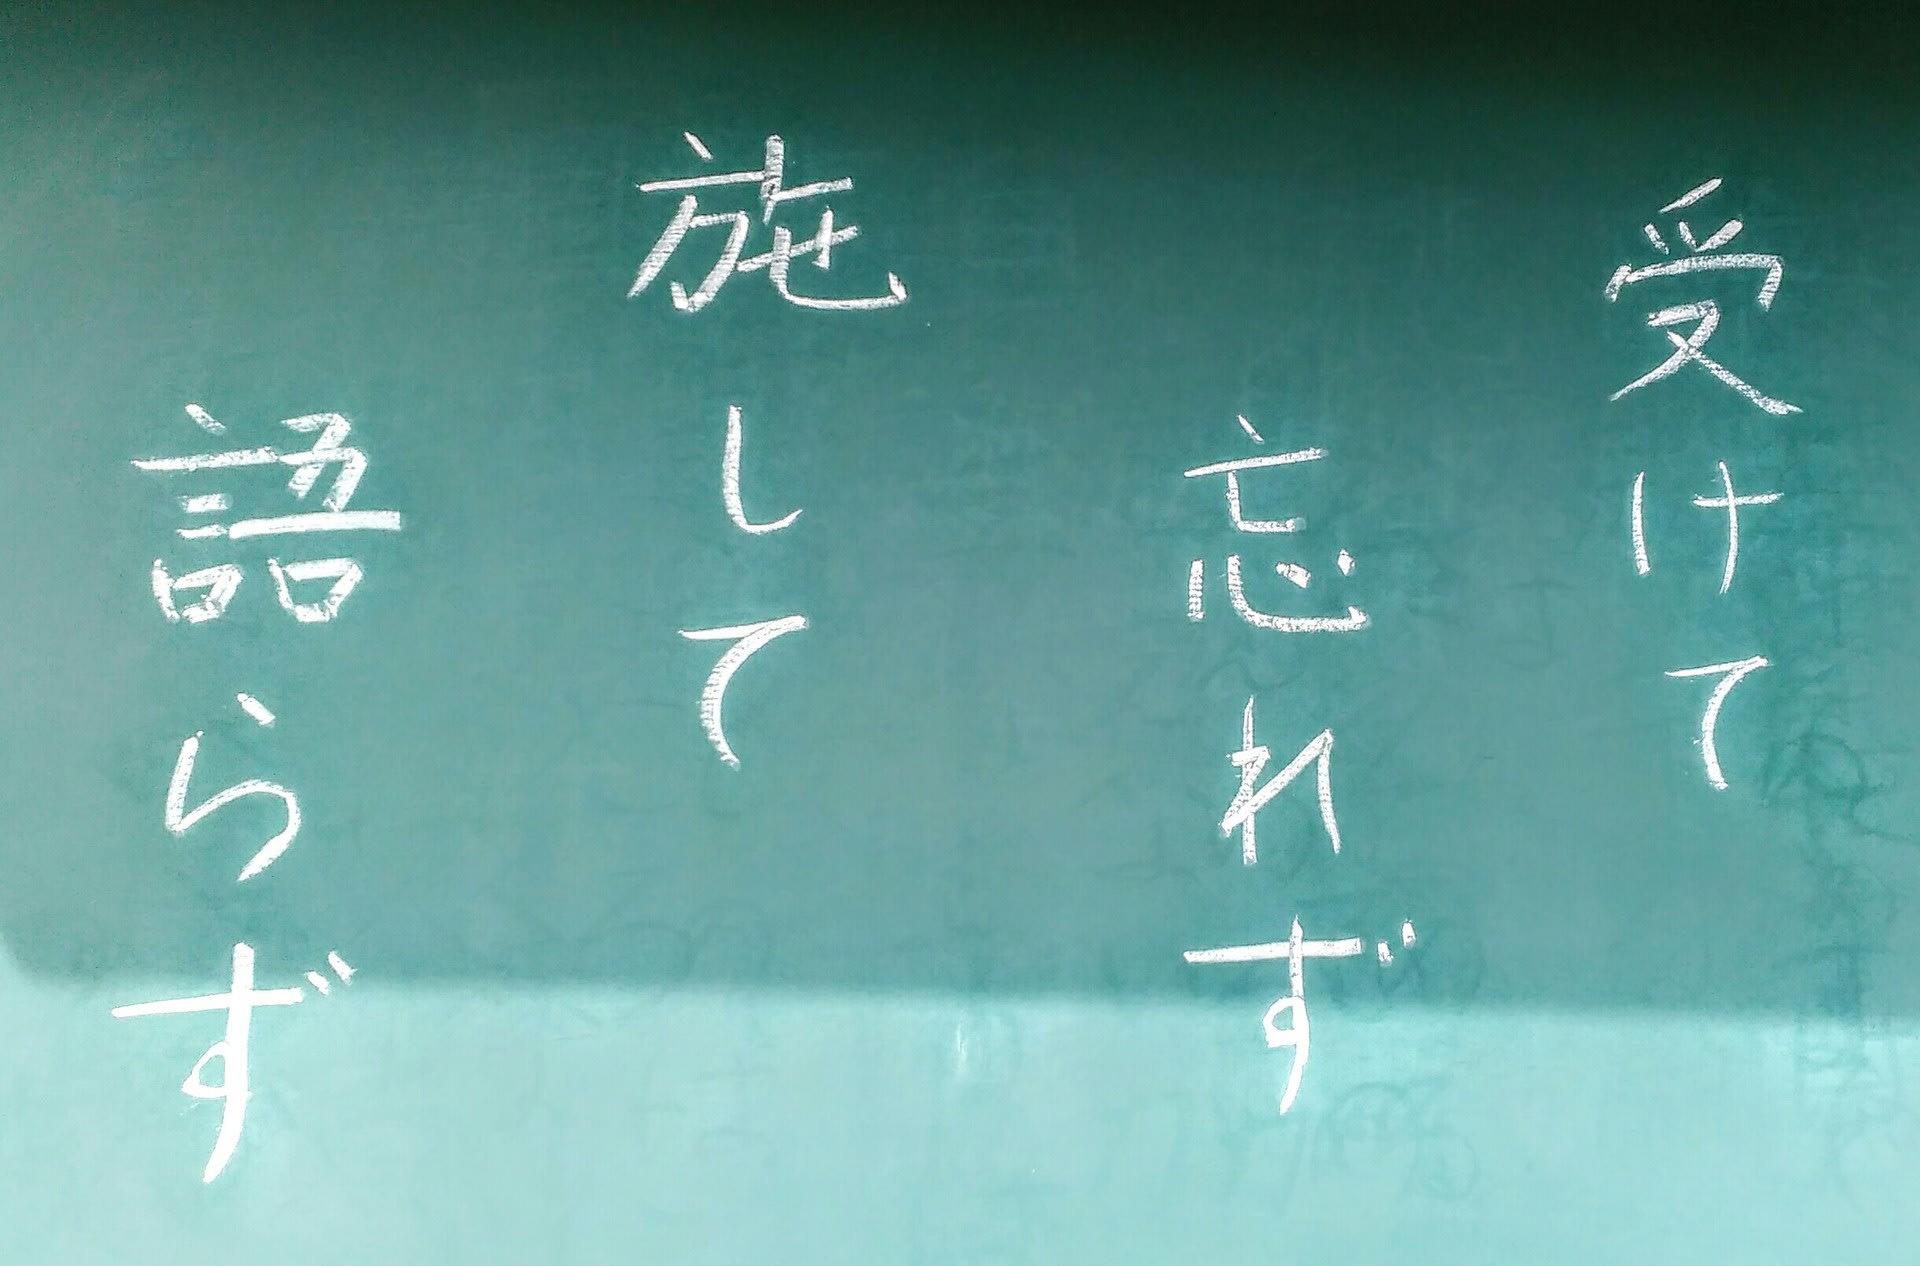 受けて
忘れず
施して
語らず